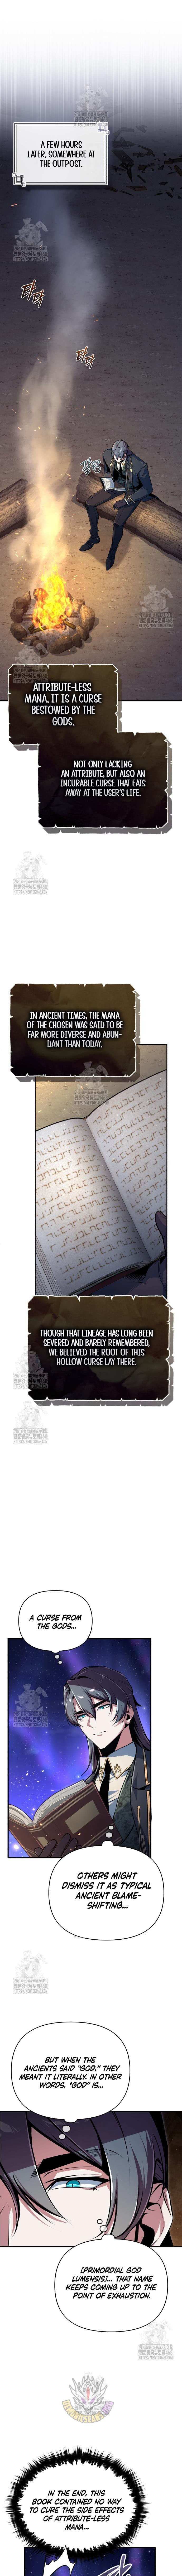 A FEW HOURS
LATER, SOMEWHERE AT
THE OUTPOST.
타
닥
타
닥
ATTRIBUTE-LESS
MANA. IT IS A CURSE
BESTOWED BY THE
GODS.
NOT ONLY LACKING
AN ATTRIBUTE, BUT ALSO AN
INCURABLE CURSE THAT EATS
AWAY AT THE USER'S LIFE.
IN ANCIENT TIMES, THE MANA
OF THE CHOSEN WAS SAID TO BE
FAR MORE DIVERSE AND ABUN-
DANT THAN TODAY.
THOUGH THAT LINEAGE HAS LONG BEEN
SEVERED AND BARELY REMEMBERED,
WE BELIEVED THE ROOT OF THIS
HOLLOW CURSE LAY THERE.
A CURSE FROM
THE GODS...
OTHERS MIGHT
DISMISS IT AS TYPICAL
ANCIENT BLAME-
SHIFTING...
BUT WHEN THE
ANCIENTS SAID "GOD," THEY
MEANT IT LITERALLY. IN OTHER
WORDS, "GOD" IS...
[PRIMORDIAL GOD
LUMENSIS]... THAT NAME
KEEPS COMING UP TO THE
POINT OF EXHAUSTION.
IN THE END, THIS
BOOK CONTAINED NO WAY
TO CURE THE SIDE EFFECTS
OF ATTRIBUTE-LESS
MANA...